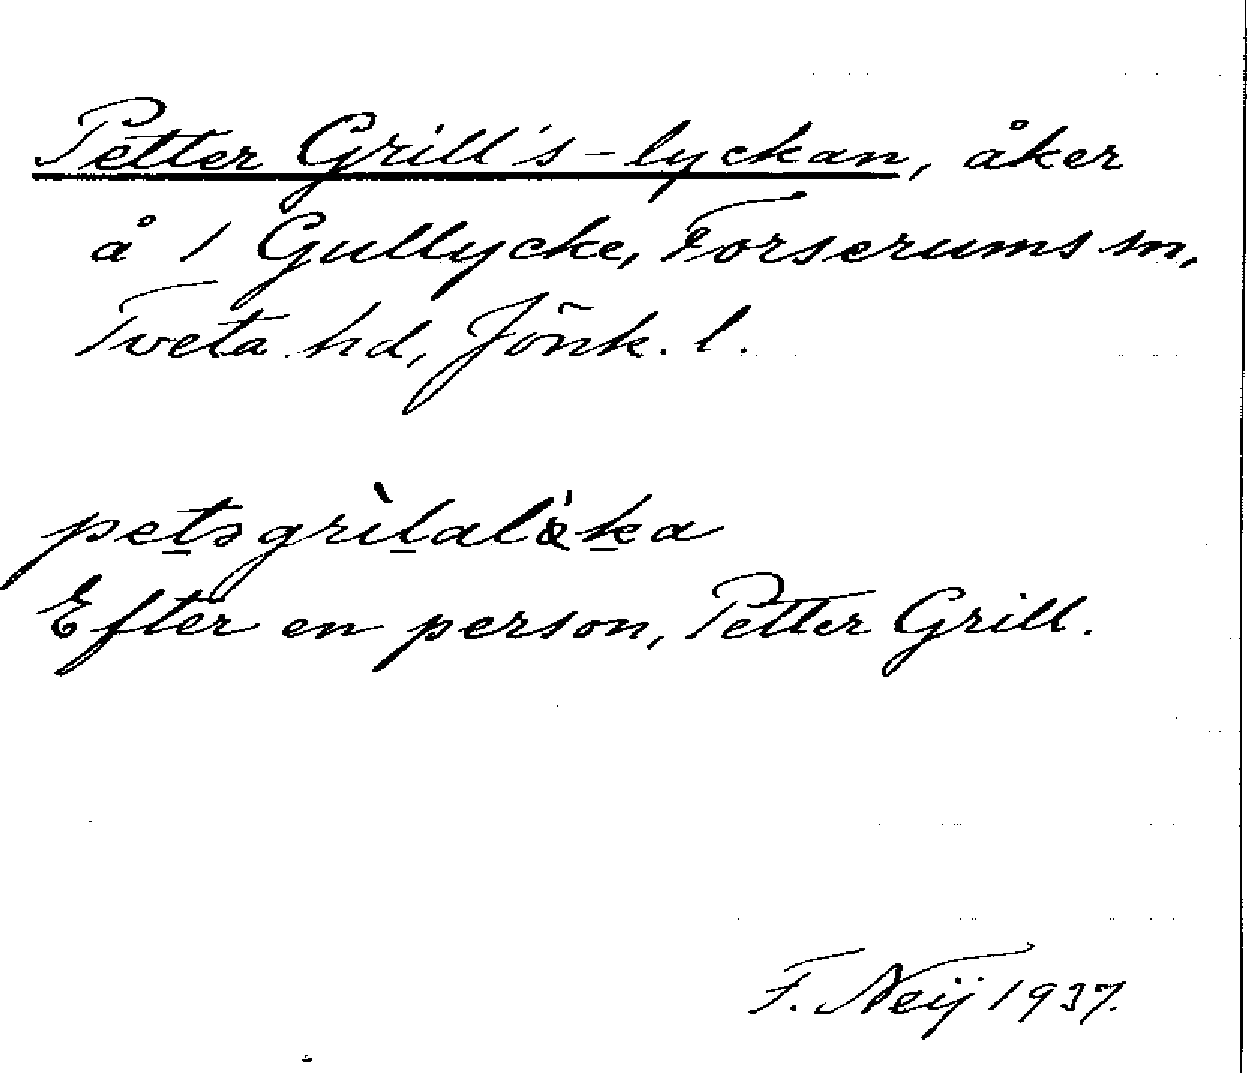 Petter Grill's-lyckan, åker
å 1 Gullycke, Forserums sn,
Tveta hd, Jönk. l.
Efter en person, Petter Grill.
F. Neij 1937.